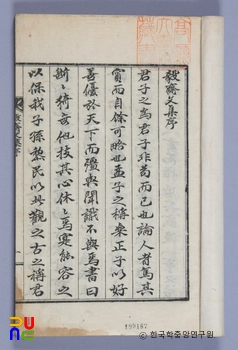 毅齋文集序
君子之爲君子非苟而已也論人者篤其
實而自餘可略也孟子之稱樂正子以好
善優於天下而彊與聞識不與焉書曰
斷斷猗无他技其心休休焉寔能容之
以保我子孫黎民以此觀之古之稱君
한국학중앙연구원